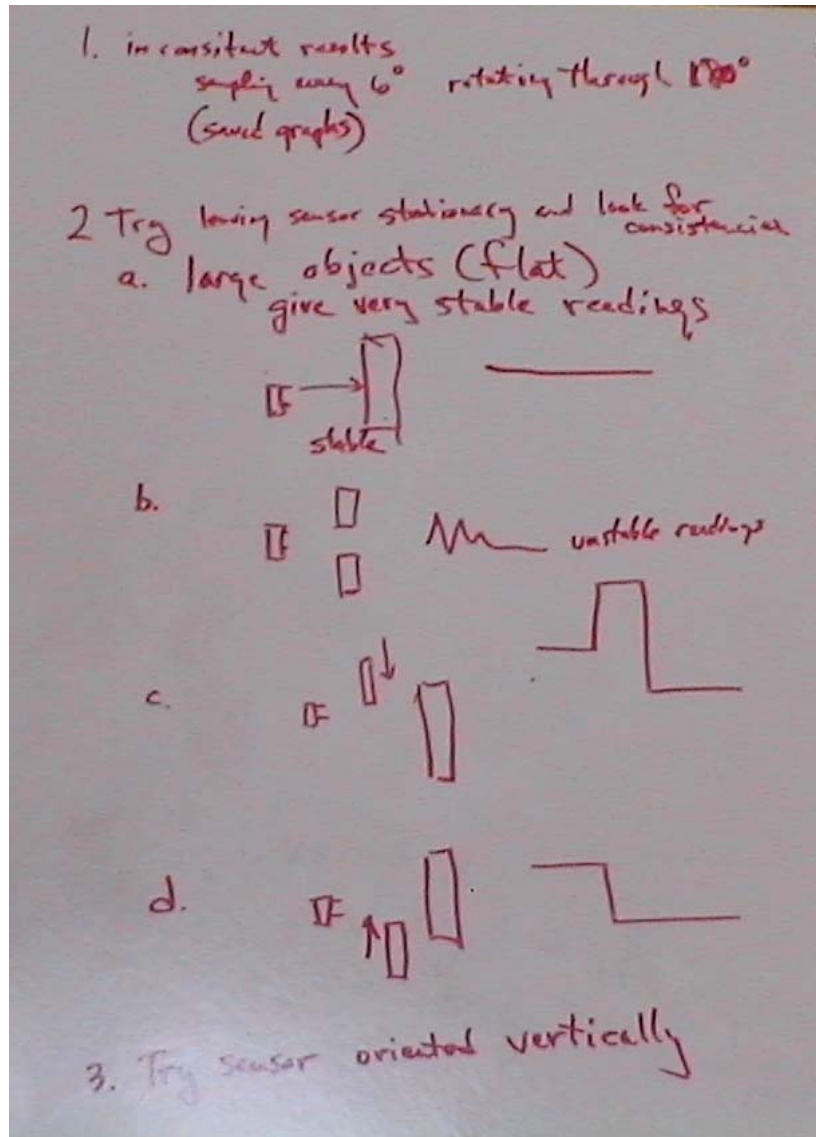 1. inconsitent results
sampling every 6° rotating through 180°
(saved graphs)
2 Try leaving sensor stationary and look for
consistencies
a. large objects (flat)
give very stable readings
stable
b.
unstable readings
c.
d.
3. Try sensor oriented vertically